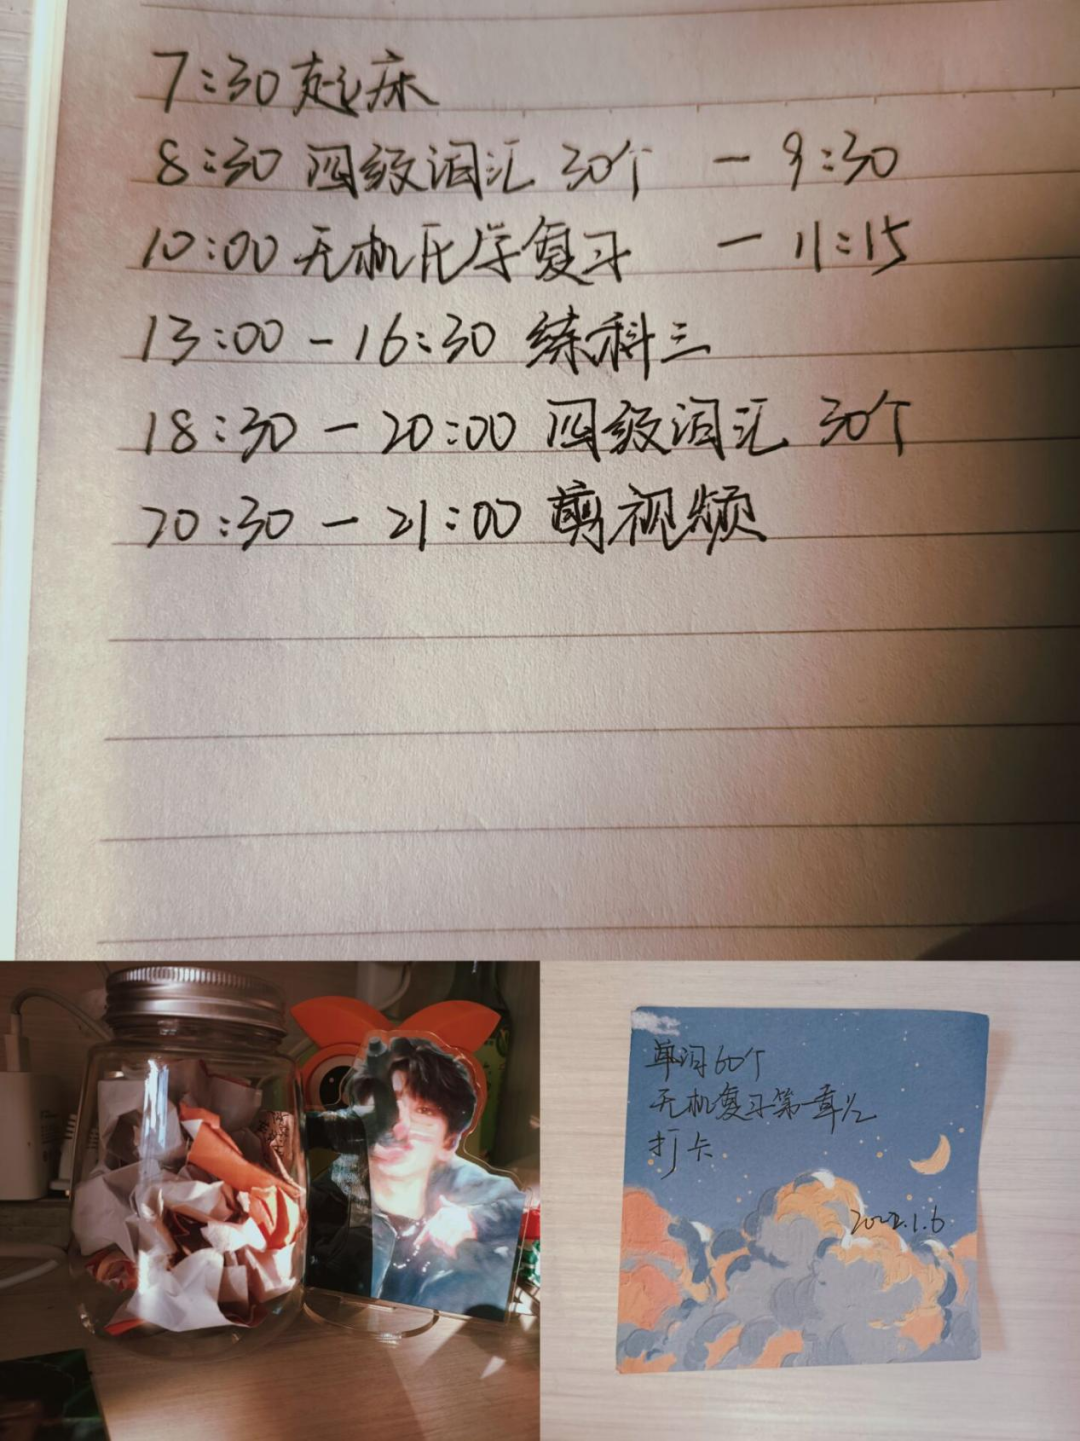 7:30 起床
8:30 四级词汇 30个 - 9:30
10:00 无机化学复习 - 11:15
13:00 - 16:30 练科三
18:30 - 20:00 四级词汇 30个
20:30 - 21:00 剪视频
单词60个
无机复习第一章
打卡
2022.1.6